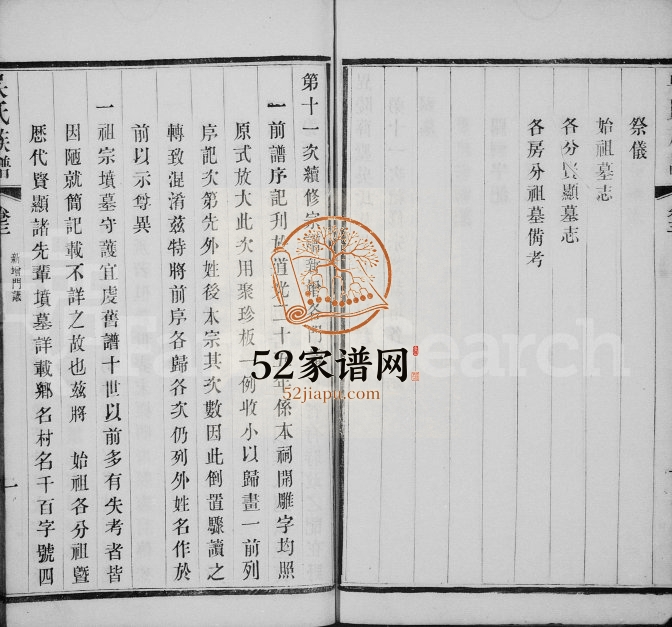 祭儀
始祖墓志
各分㫷顯墓志
各房分祖墓備考
第十一次續修宗譜新增各門
一前譜序記刊於道光二十年係本祠開雕字均照
原式放大此次用聚珍板一例收小以歸畫一前列
序記次第先外姓後本宗其次數因此倒置驟讀之
轉致混淆茲特將前序各歸各次仍列外姓名作於
前以示尊異
一祖宗墳墓守護宜虔舊譜十世以前多有失考者皆
因陋就簡記載不詳之故也茲將 始祖各分祖暨
歷代賢顯諸先輩墳墓詳載鄉名村名千百字號四
氏族譜
卷三
新增門議
一
52家谱网
52jiapu.com
Search